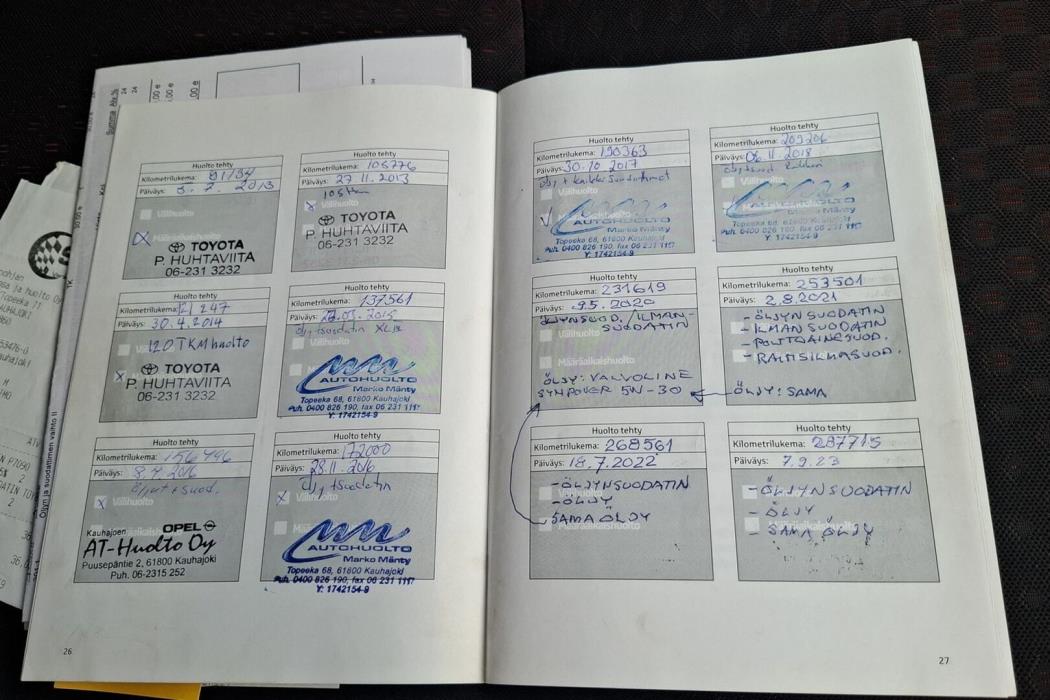 Huolto tehty
Kilometrilukema: 91134
Päiväys: 3. 7. 2013
Välihuolto
TOYOTA
P. HUHTAVIITA
06-231 3232
Huolto tehty
Kilometrilukema: 105776
Päiväys: 27 11. 2013
Välihuolto
TOYOTA
P. HUHTAVIITA
06-231 3232
Huolto tehty
Kilometrilukema: 121 247
Päiväys: 30. 4. 2014
120 TKM huolto
TOYOTA
P. HUHTAVIITA
06-231 3232
Huolto tehty
Kilometrilukema: 137561
Päiväys: 2015
öljytsuodatin
Välihuolto
AUTOHUOLTO
Marko Mänty
Topeeka 68, 61800 Kauhajoki
Puh. 0400 826 190, fax 06 231 1117
Y: 1742154-9
Huolto tehty
Kilometrilukema: 156496
Päiväys: 8.4. 2016
Öljyt + suod.
Välihuolto
Kauhajoen OPEL
AT-Huolto Oy
Puusepäntie 2, 61800 Kauhajoki
Puh. 06-2315 252
Huolto tehty
Kilometrilukema: 172000
Päiväys: 28.11. 2016
öljytsuodatin
Välihuolto
AUTOHUOLTO
Marko Mänty
Topeeka 68, 61800 Kauhajoki
Puh. 0400 826 190, fax 06 231 1117
Y: 1742154-9
26
Huolto tehty
Kilometrilukema: 190363
Päiväys: 30.10 2017
öljy + kaikki suodattimet
Välihuolto
AUTOHUOLTO
Marko Mänty
Topeeka 68, 61800 Kauhajoki
Puh. 0400 826 190, fax 06 231 1117
Y: 1742154-9
Huolto tehty
Kilometrilukema: 209206
Päiväys: 06.11. 2018
Välihuolto
AUTOHUOLTO
Marko Mänty
Topeeka 68, 61800 Kauhajoki
Puh. 0400 826 190, fax 06 231 1117
Y: 1742154-9
Huolto tehty
Kilometrilukema: 231619
Päiväys: 9.5. 2020
ÖLJYNSUOD. / ILMAN-
SUODATIN
Määräaikaishuolto
ÖLJY: VALVOLINE
SYNPOWER 5W-30
Huolto tehty
Kilometrilukema: 253501
Päiväys: 2.8.2021
- ÖLJYN SUODATIN
- ILMAN SUODATIN
- POLTOAINESUOD.
- RAITISILMASUOD.
ÖLJY: SAMA
Huolto tehty
Kilometrilukema: 268561
Päiväys: 18.7.2022
- ÖLJYNSUODATIN
- ÖLJY
SAMA ÖLJY
Huolto tehty
Kilometrilukema: 287715
Päiväys: 7.9.23
- ÖLJYNSUODATIN
- ÖLJY
- SAMA ÖLJY
27